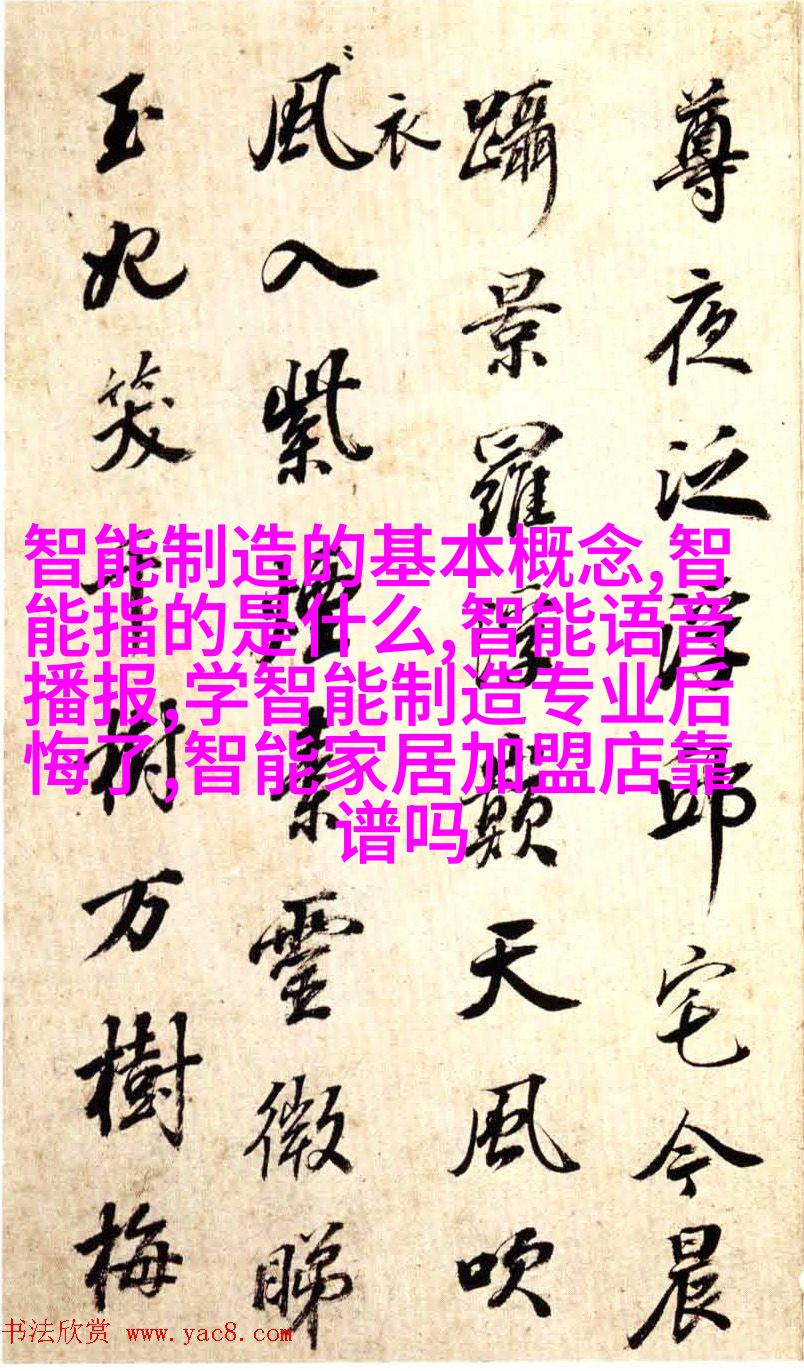 尊夜泛浮邱宅今晨
躡景羅浮顛天風吹
衣
風入紫檀素靈微睇
玉妃笑 樹万樹梅
智能制造的基本概念,智
能指的是什么,智能语音
播报,学智能制造专业后
悔了,智能家居加盟店靠
谱吗
书法欣赏 www.yac8.com